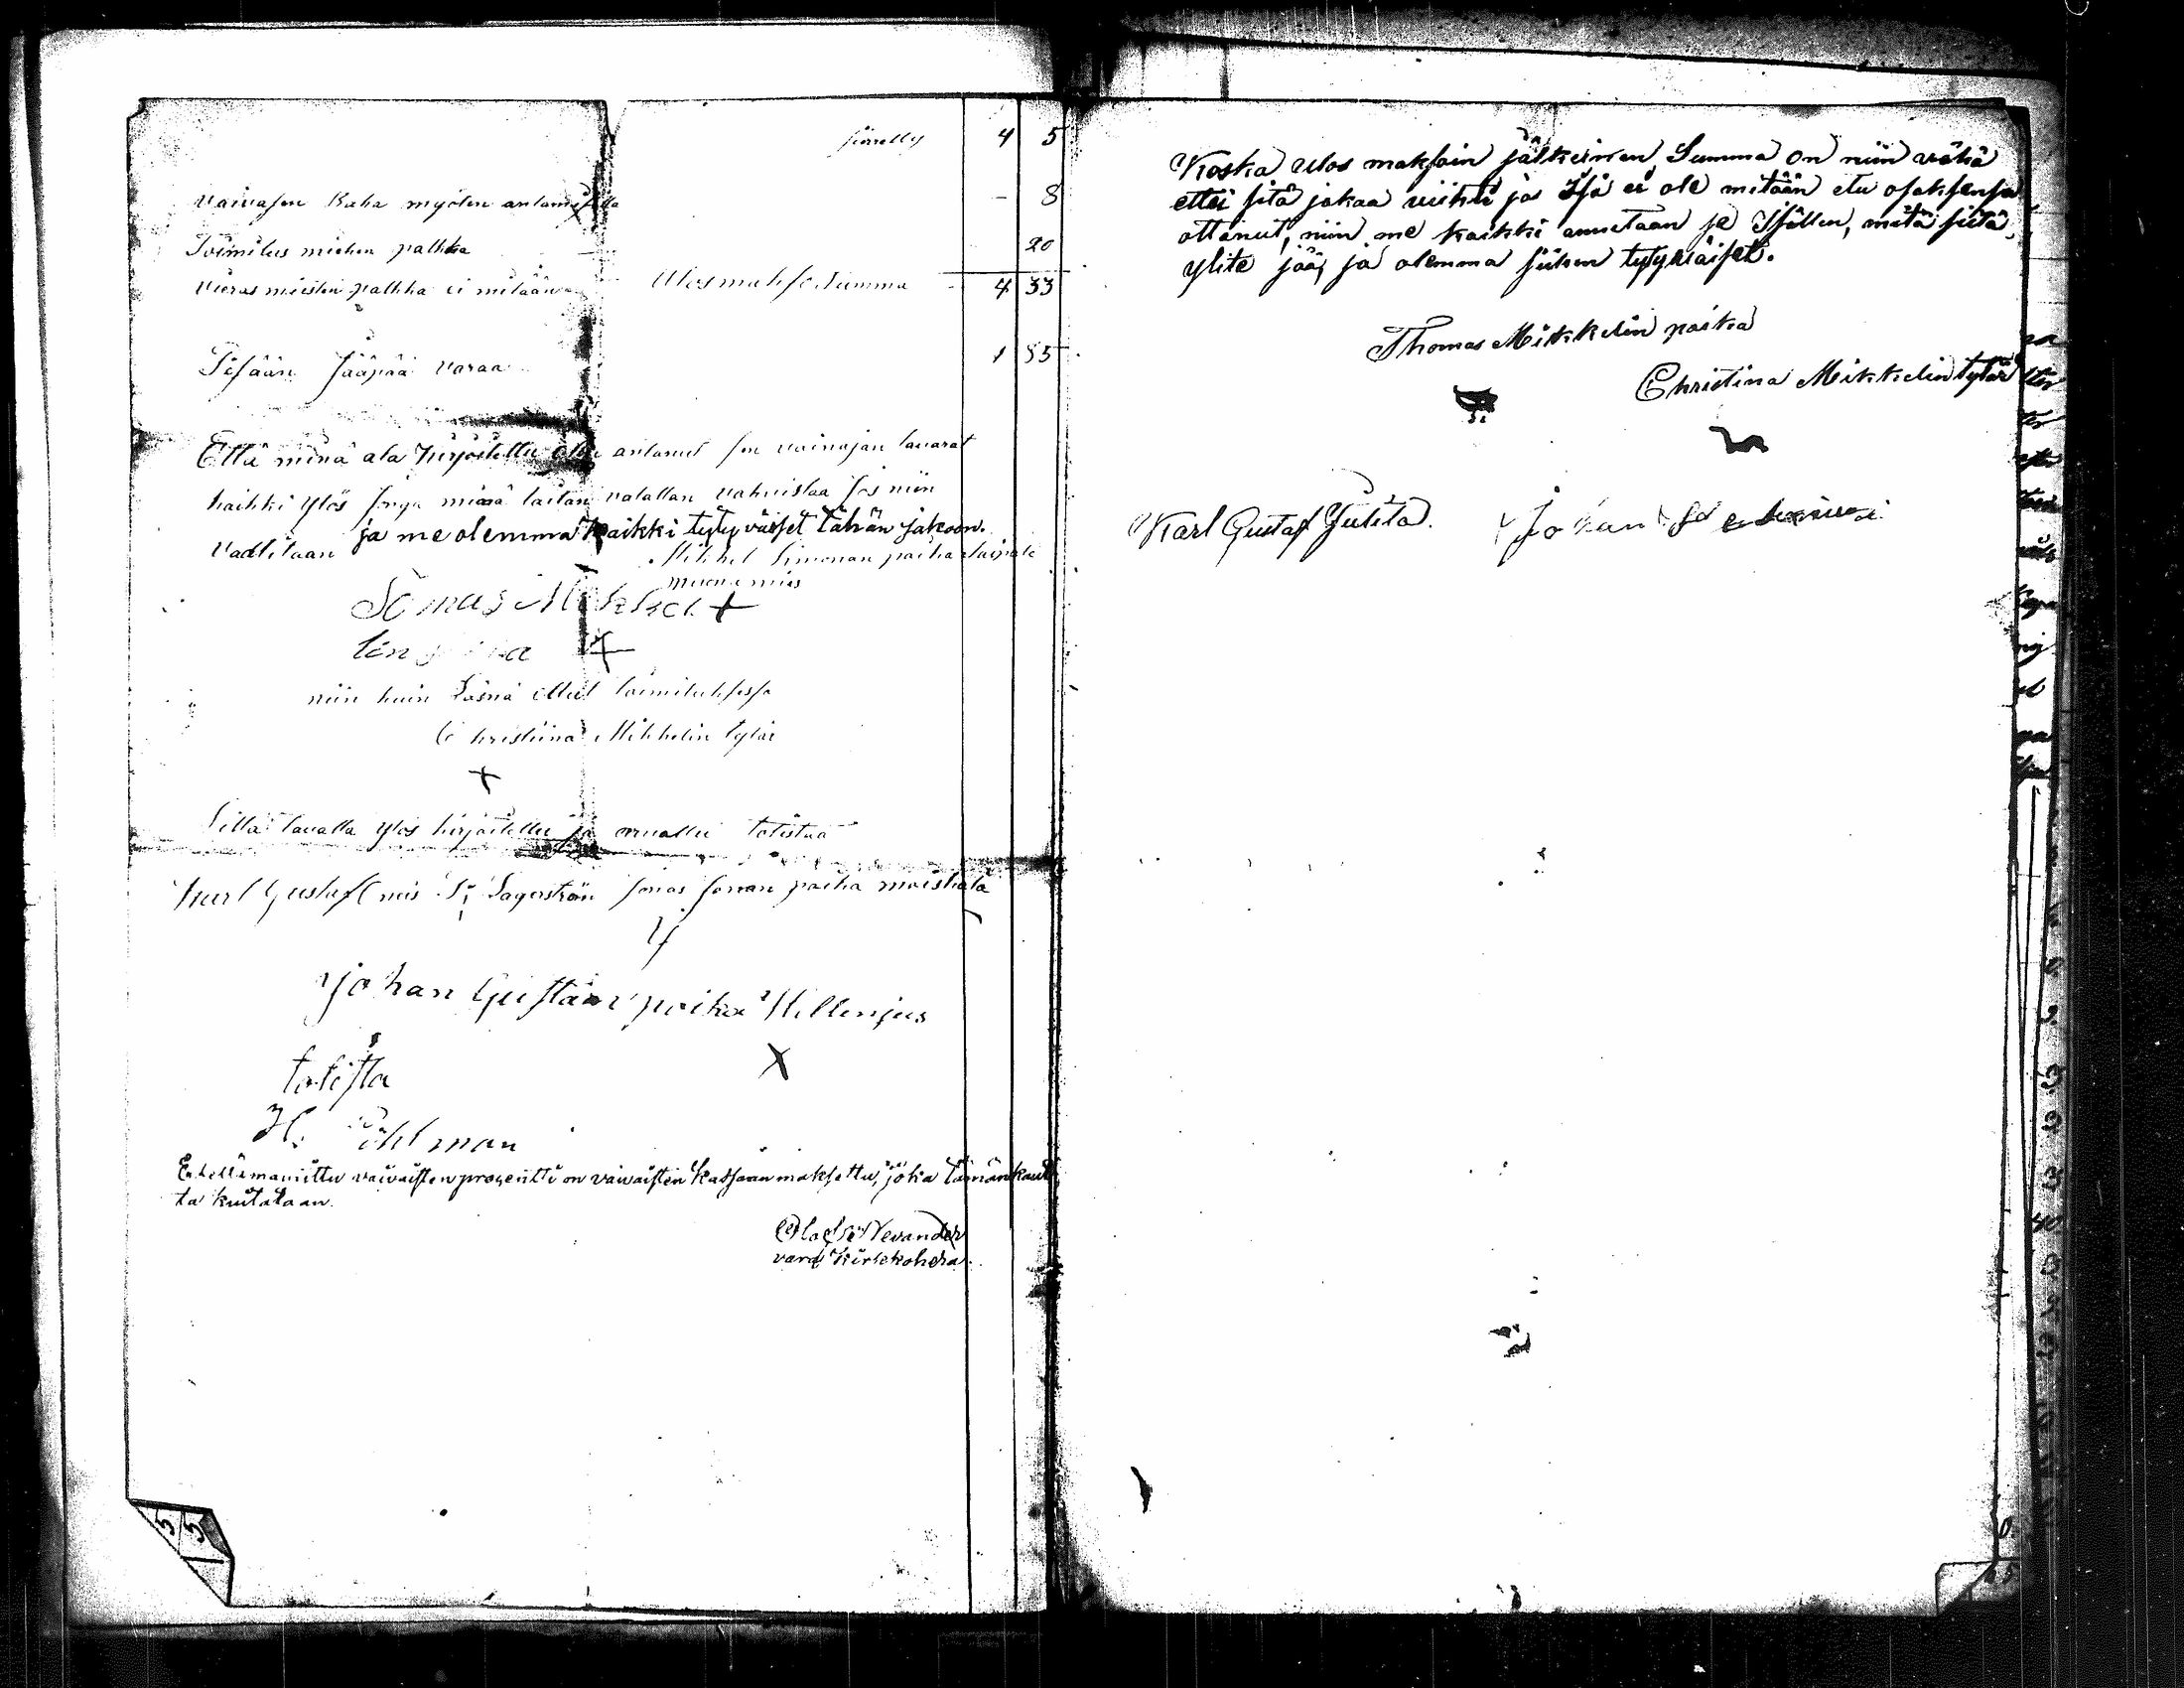 siirretty 4 5
vaivasen Raha myöten antamisesta - 8
Toimitus miehen palkka - 20
vieras miesten palkka ei mitään Ulosmakso Summa - 4 33
Pesään jääpää varaa 1 85
Että minä ala kirjoitettu olen antanut sen vainajan tavarat
kaikki ylös jonga minä taitan valallan vahvistaa jos niin
vaaditaan ja me olemma kaikki tytyväiset tähän jakoon.
Mikkel Simonan poika
muona mies
Tomas Mikkel +
+
niin kuin läsnä ollut toimituksessa
Christiina Mikkelin tytär
+
Sillä tavalla ylös kirjoitettu ja arvattu totistaa
Karl Gustaf Lagerström Jonas poika
Johan Gustaav poika Hellenius
totista X
H. Öhlman
Edellämainittu vaivaisten prosentti on vaivaisten Kassaan maksettu, joka tämän kaut-
ta kuitataan.
Olof Levander
vara Kirkkohera.
Koska ulos maksoin jälkeinen Summa on niin vähä
ettei sitä jakaa viihti ja Isä ei ole mitään etu osaksensa
ottanut, niin me kaikki annetaan se Isällen, mitä siitä
ylite jää, ja olemma siihen tytyväiset.
Thomas Mikkelin poika
Christina Mikkelin tytär
Karl Gustaf Juhta. Johan